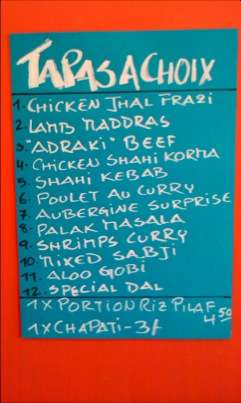 TAPAS A CHOIX
1. CHICKEN JHAL FRAZI
2. LAMB MADDRAS
3. "ADRAKI" BEEF
4. CHICKEN SHAHI KORMA
5. SHAHI KEBAB
6. POULET AU CURRY
7. AUBERGINE SURPRISE
8. PALAK MASALA
9. SHRIMPS CURRY
10. MIXED SABJI
11. ALOO GOBI
12. SPECIAL DAL
1X PORTION RIZ PILAF 4.50
1X CHAPATI - 3/